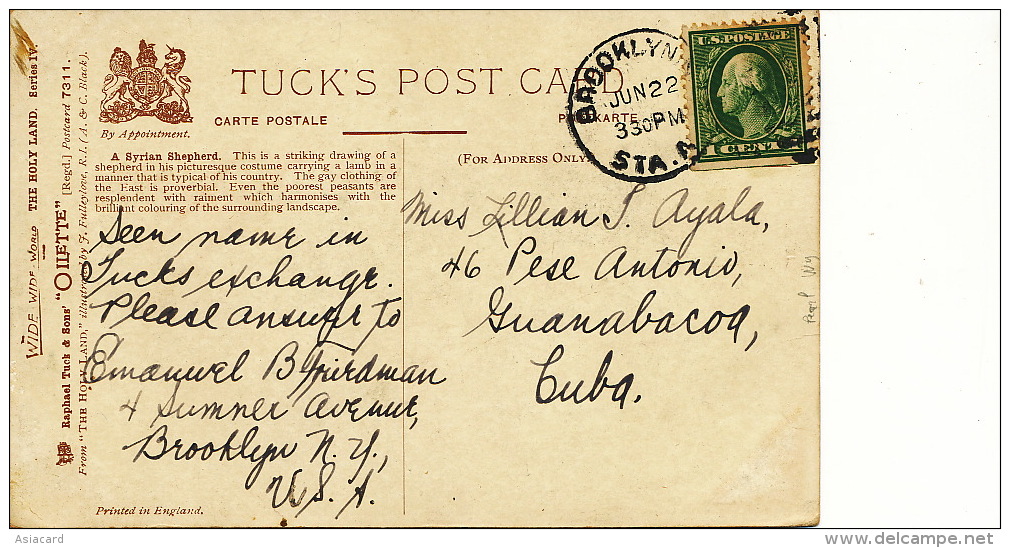 WIDE-WIDE-WORLD THE HOLY LAND. Series IV.
Raphael Tuck & Sons' "OILETTE" [Regd.] Postcard 7311.
From "THE HOLY LAND," illustrated by J. Fulleylove, R.I. (A. & C. Black).
By Appointment.
TUCK'S POST CARD
CARTE POSTALE
POSTKARTE
A Syrian Shepherd. This is a striking drawing of a
shepherd in his picturesque costume carrying a lamb in a
manner that is typical of his country. The gay clothing of
the East is proverbial. Even the poorest peasants are
resplendent with raiment which harmonises with the
brilliant colouring of the surrounding landscape.
(FOR ADDRESS ONLY
BROOKLYN
JUN 22
330PM
STA. A
U.S. POSTAGE
1 CENT 1
Seen name in
Tucks exchange.
Please answer to
Emanuel B Friedman
4 Sumner Avenue,
Brooklyn N.Y.,
U.S.A.
Miss Lillian T. Ayala,
46 Pese Antonio,
Guanabacoa,
Cuba.
Printed in England.
Asiacard
www.delcampe.net